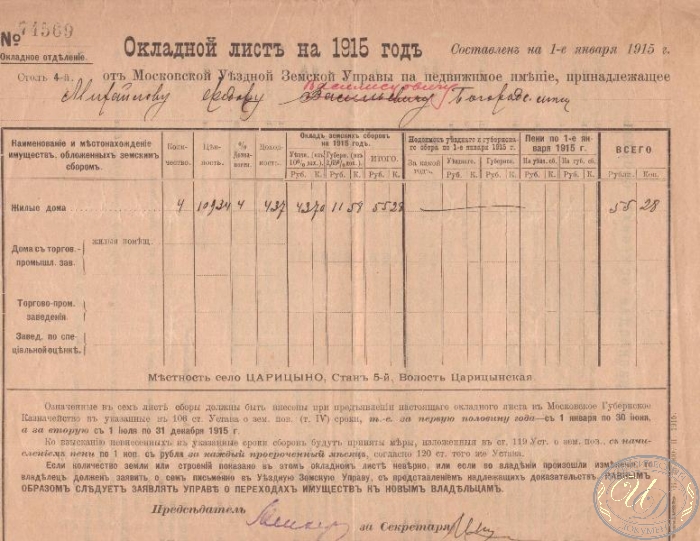 № 74569
Окладное отдѣленіе.
Окладной листъ на 1915 годъ
Составленъ на 1-е января 1915 г.
Столъ 4-й.
отъ Московской Уѣздной Земской Управы на недвижимое имѣніе, принадлежащее
Михайлову Ѳедору Васильевичу
Наименованіе и мѣстонахожденіе имуществъ, обложенныхъ земскимъ сборомъ.
Количество.
Цѣнность.
% Доходности.
Доходность.
Окладъ земскихъ сборовъ на 1915 годъ.
Губерн.
ИТОГО.
Руб. К. Руб. К. Руб. К.
Недоимокъ уѣзднаго и губернскаго сбора по 1-е января 1915 г.
За какой годъ.
Уѣзднаго.
Губернск.
Руб. К. Руб. К.
Пени по 1-е января 1915 г.
На уѣзд. сб.
На губ. сб.
Руб. К. Руб. К.
ВСЕГО
Рубли. Коп.
Жилые дома
4 10934 4 437 43 70 11 58 55 28 55 28
Дома съ торгов.-промышл. зав.
жилая помѣщ.
Торгово-пром. заведенія.
Завед. по спеціальной оцѣнкѣ.
Мѣстность село ЦАРИЦЫНО, Станъ 5-й, Волость Царицынская.
Означенные въ семъ листѣ сборы должны быть внесены при предъявленіи настоящаго окладного листа въ Московское Губернское
Казначейство въ указанные въ 106 ст. Устава о зем. пов. (т. IV) сроки, т.-е. за первую половину года—съ 1 января по 30 іюня,
а за вторую съ 1 іюля по 31 декабря 1915 г.
Ко взысканію невнесенныхъ въ указанные сроки сборовъ будутъ приняты мѣры, изложенныя въ ст. 119 Уст. о зем. пов., съ начи-
сленіемъ пени по 1 коп. съ рубля за каждый просроченный мѣсяцъ, согласно 120 ст. того же Устава.
Если количество земли или строеній показано въ этомъ окладномъ листѣ невѣрно, или если во владѣніи произошли измѣненія, то
владѣлецъ долженъ заявить о семъ письменно въ Уѣздную Земскую Управу, съ представленіемъ надлежащихъ доказательствъ. РАВНЫМЪ
ОБРАЗОМЪ СЛѢДУЕТЪ ЗАЯВЛЯТЬ УПРАВѢ О ПЕРЕХОДАХЪ ИМУЩЕСТВЪ КЪ НОВЫМЪ ВЛАДѢЛЬЦАМЪ.
Предсѣдатель
за Секретаря